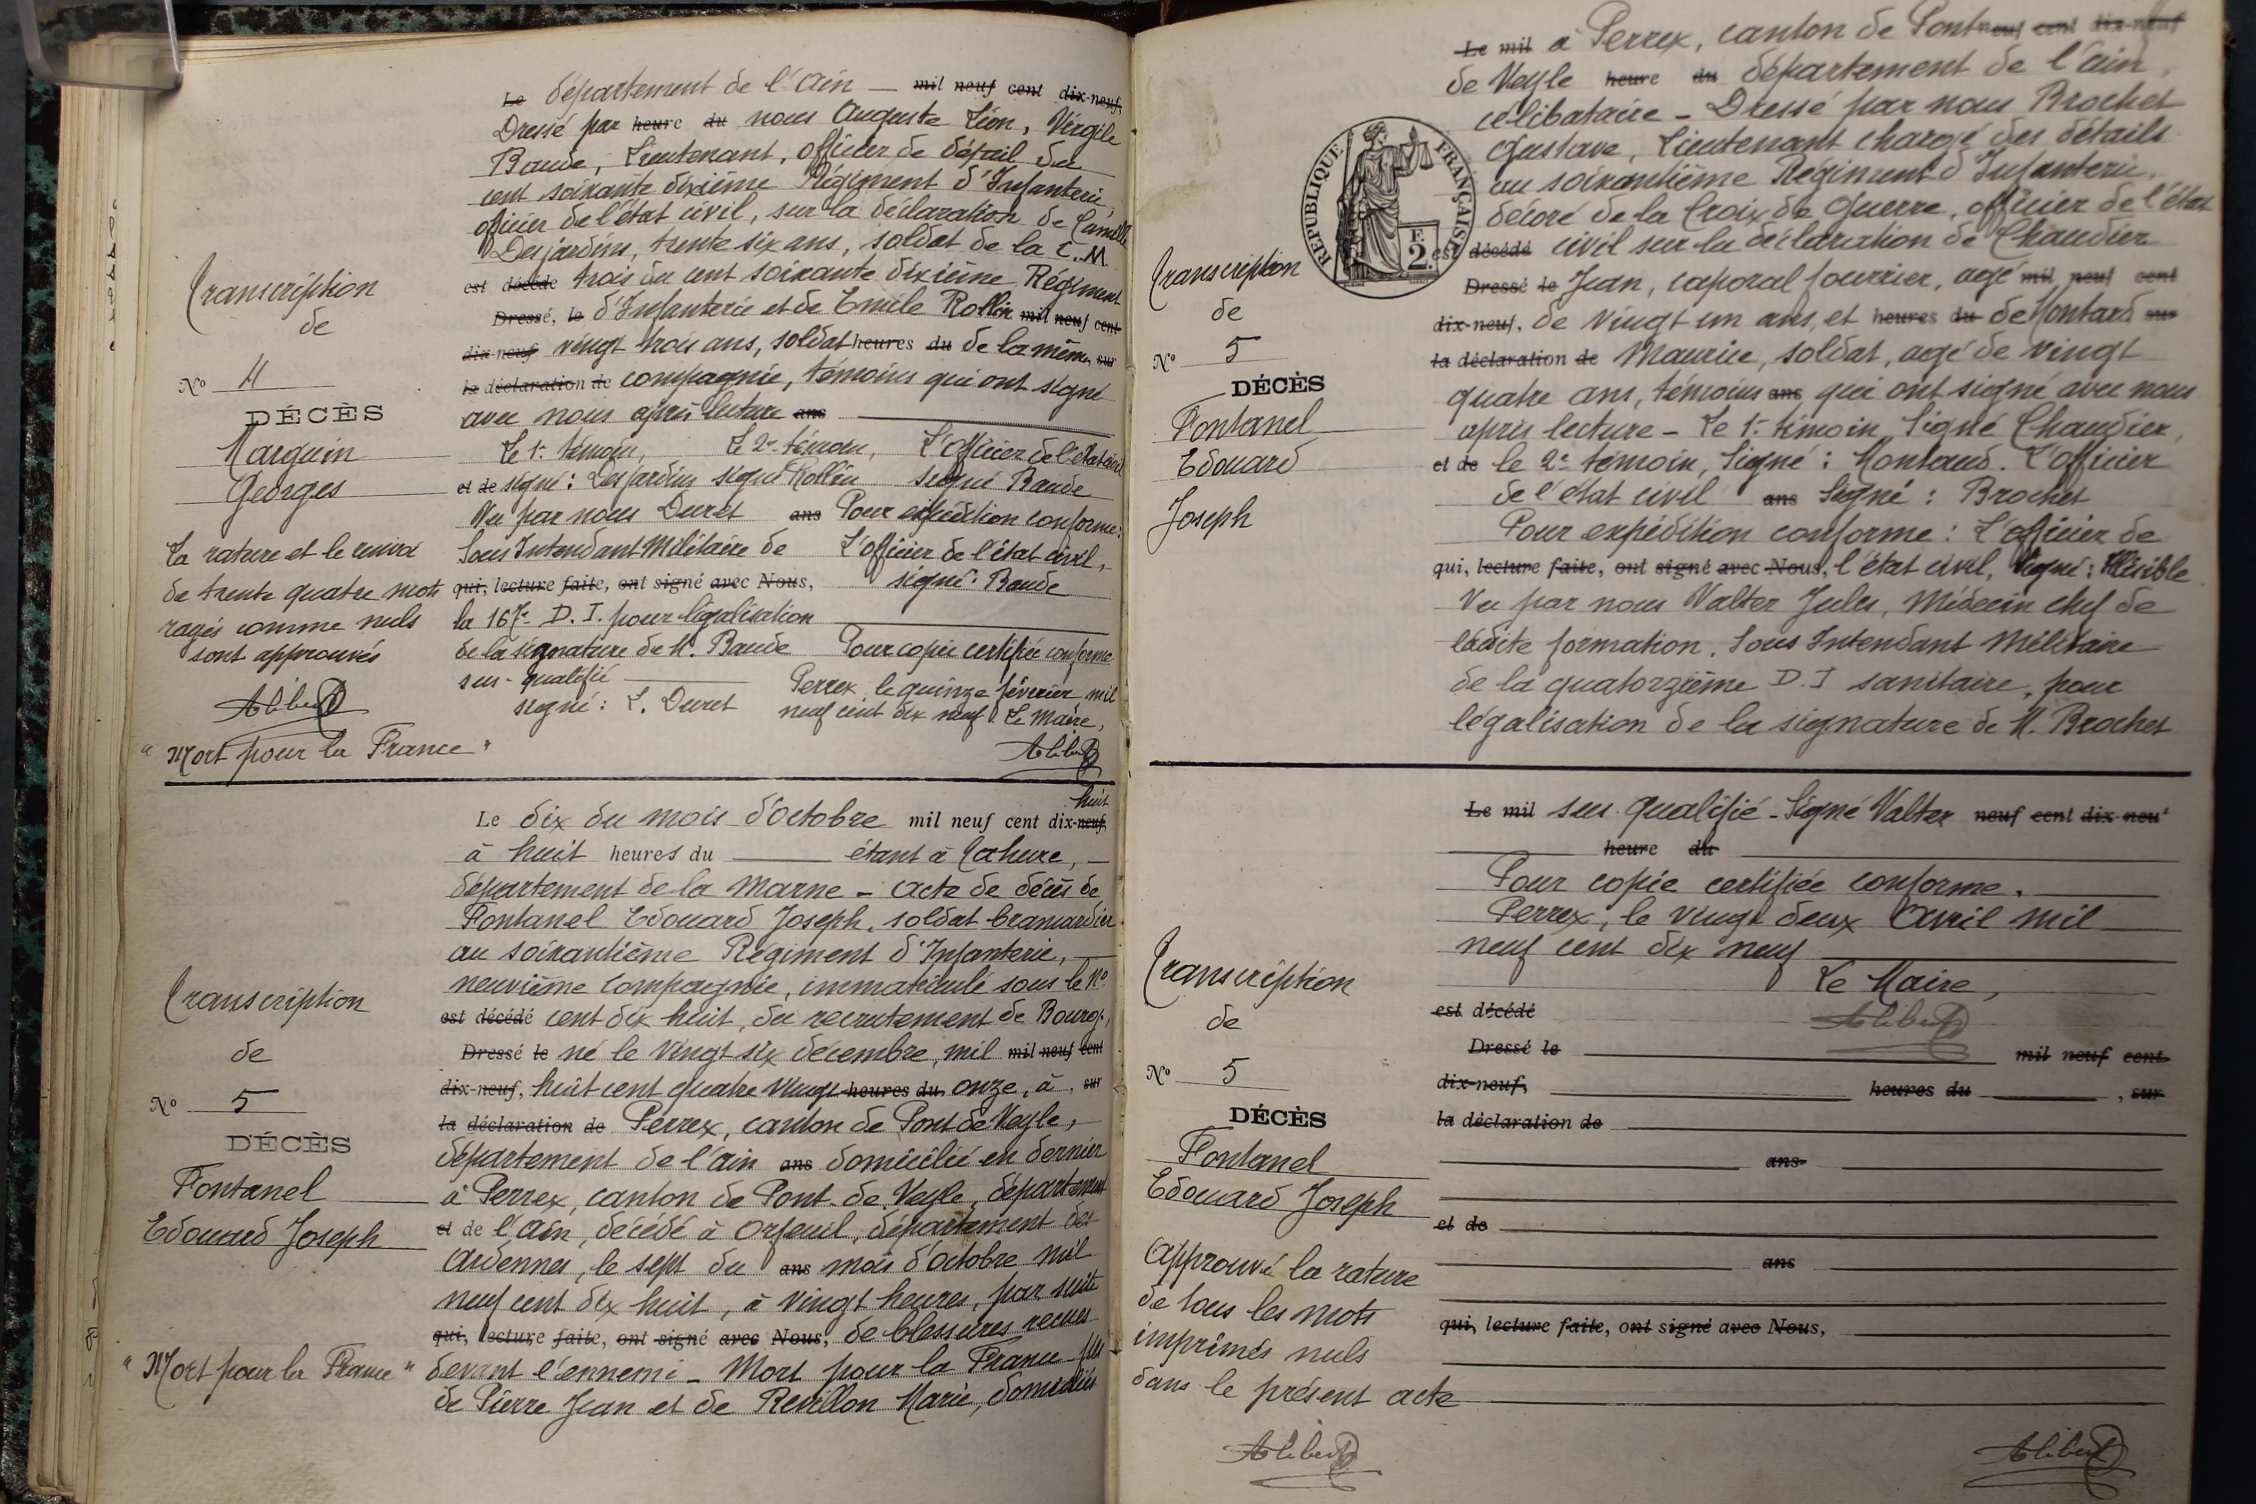 Le département de l'Ain — mil neuf cent dix-neuf,
Dressé par heure du nous Auguste Léon, Virgile
Baude, Lieutenant, officier de détail du
cent soixante dixième Régiment d'Infanterie,
officier de l'état civil, sur la déclaration de Camille
Desjardins, trente six ans, soldat de la C.M.
est décédé trois du cent soixante dixième Régiment
Dressé, le d'Infanterie et de Emile Rollin mil neuf cent
dix-neuf vingt trois ans, soldat heures du de la même, sur
la déclaration de compagnie, témoins qui ont signé
avec nous après lecture ans
Le 1er témoin, Le 2e témoin, L'officier de l'état civil
et de signé : Desjardins signé Rollin signé Baude
Vu par nous Duret ans Pour expédition conforme :
Sous Intendant Militaire de L'officier de l'état civil,
qui, lecture faite, ont signé avec Nous, signé : Baude
la 167e D. I. pour légalisation
de la signature de M. Baude Pour copie certifiée conforme
sus-qualifié Perrex, le quinze février mil
signé : L. Duret neuf cent dix neuf Le Maire,
Alibert
Transcription
de
No 4
DÉCÈS
Marguin
Georges
La rature et le renvoi
de trente quatre mots
rayés comme nuls
sont approuvés
Alibert
"Mort pour la France"
Le dix du mois d'octobre mil neuf cent dix-neuf, huit
à huit heures du étant à Tahure,
département de la Marne - acte de décès de
Fontanel Edouard Joseph, soldat brancardier
au soixantième Régiment d'Infanterie,
neuvième compagnie, immatriculé sous le No
est décédé cent dix huit, du recrutement de Bourg,
Dressé le né le vingt six décembre, mil mil neuf cent
dix-neuf, huit cent quatre vingt heures du onze, à, sur
la déclaration de Perrex, canton de Pont de Veyle,
département de l'Ain ans domicilié en dernier
à Perrex, canton de Pont-de-Veyle, département
et de l'Ain, décédé à Orfeuil, département des
Ardennes, le sept du ans mois d'octobre mil
neuf cent dix huit, à vingt heures, par suite
qui, lecture faite, ont signé avec Nous, de blessures reçues
devant l'ennemi - Mort pour la France - fils
de Pierre Jean et de Revillon Marie, domiciliés
Transcription
de
No 5
DÉCÈS
Fontanel
Edouard Joseph
"Mort pour la France"
Le mil à Perrex, canton de Pont neuf cent dix-neuf
de Veyle heure du département de l'Ain,
célibataire - Dressé par nous Brochet
Gustave, Lieutenant chargé des détails
au soixantième Régiment d'Infanterie,
décoré de la Croix de Guerre, officier de l'état
est décédé civil sur la déclaration de Chaudier
Dressé le Jean, caporal fourrier, agé mil neuf cent
dix-neuf, de vingt un ans, et heures du de Montard sur
la déclaration de Maurice, soldat, agé de vingt
quatre ans, témoins ans qui ont signé avec nous
après lecture - Le 1er témoin Signé Chaudier,
et de le 2e témoin, Signé : Montaud. L'officier
de l'état civil ans Signé : Brochet
Pour expédition conforme : L'officier de
qui, lecture faite, ont signé avec Nous, l'état civil, Signé : Illisible
Vu par nous Valter Jules, Médecin chef de
ladite formation, Sous Intendant Militaire
de la quatorzième D. I sanitaire, pour
légalisation de la signature de M. Brochet
RÉPUBLIQUE FRANÇAISE
2 F.
Transcription
de
No 5
DÉCÈS
Fontanel
Edouard
Joseph
Le mil sus-qualifié - Signé Valter neuf cent dix neuf
heure du
Pour copie certifiée conforme.
Perrex, le vingt deux Avril mil
neuf cent dix neuf
Le Maire,
est décédé Alibert
Dressé le mil neuf cent
dix-neuf, heures du , sur
la déclaration de
ans
et de
ans
qui, lecture faite, ont signé avec Nous,
Transcription
de
No 5
DÉCÈS
Fontanel
Edouard Joseph
Approuvé la rature
de tous les mots
imprimés nuls
dans le présent acte
Alibert Alibert